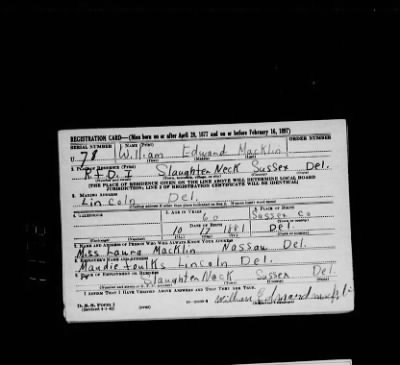 REGISTRATION CARD—(Men born on or after April 28, 1877 and on or before February 16, 1897)
SERIAL NUMBER 1. NAME (Print) ORDER NUMBER
U 78 William Edward Macklin
(First) (Middle) (Last)
2. PLACE OF RESIDENCE (Print)
R.F.D. 1 Slaughter Neck Sussex Del.
(THE PLACE OF RESIDENCE GIVEN ON THE LINE ABOVE WILL DETERMINE LOCAL BOARD
JURISDICTION; LINE 2 OF REGISTRATION CERTIFICATE WILL BE IDENTICAL)
3. MAILING ADDRESS
Lincoln Del.
4. TELEPHONE 5. AGE IN YEARS 6. PLACE OF BIRTH
60 Sussex Co
DATE OF BIRTH
10 17 1881 Del.
(Mo.) (Day) (Yr.)
7. NAME AND ADDRESS OF PERSON WHO WILL ALWAYS KNOW YOUR ADDRESS
Miss Laura Macklin Nassau Del.
8. EMPLOYER'S NAME AND ADDRESS
Maudie foulks Lincoln Del.
9. PLACE OF EMPLOYMENT OR BUSINESS
Slaughter Neck Sussex Del
I AFFIRM THAT I HAVE VERIFIED ABOVE ANSWERS AND THAT THEY ARE TRUE.
D. S. S. Form 1
William Edward